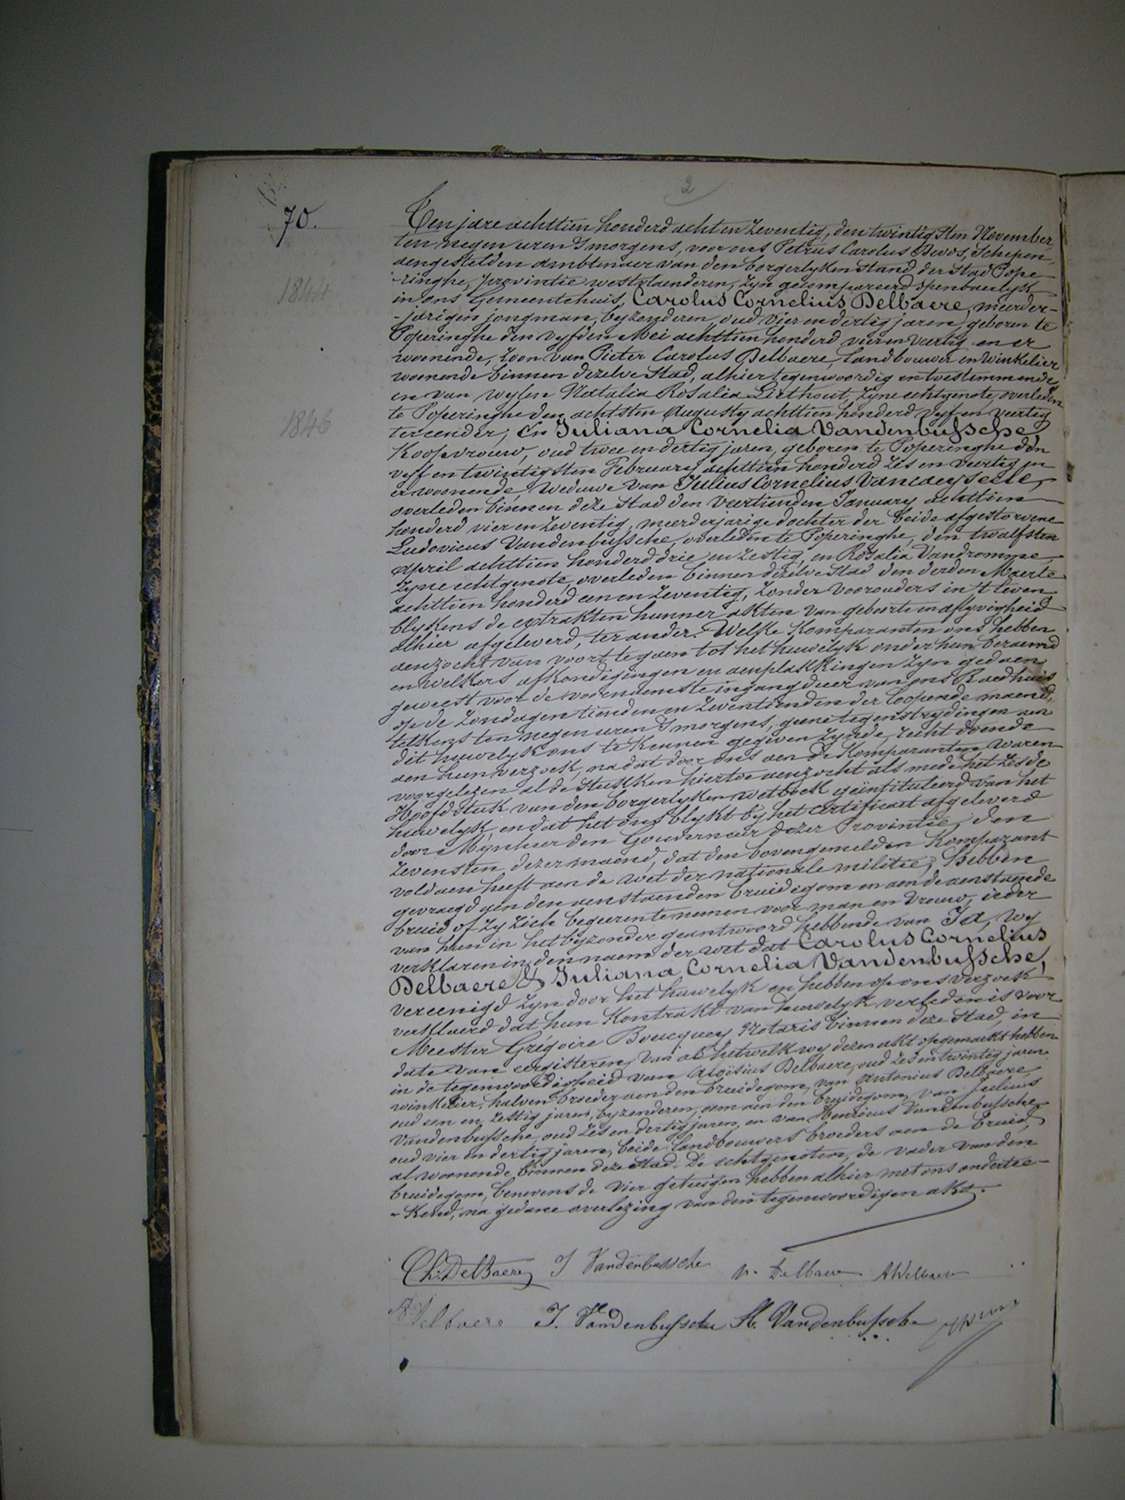 2
70.
Ten jare achttien honderd acht en zeventig, den twintigsten November
ten negen uren 's morgens, voor ons Petrus Carolus Schepen,
aengestelden ambtenaer van den borgerlyken stand der Stad Pope-
-ringhe, provintie westvlaenderen, zyn gecompareerd openbaerlyk
1844
in ons Gemeentehuis, Carolus Cornelius Delbaere, meerder-
-jarigen jongman, byzonderen, oud vier en dertig jaren, geboren te
Poperinghe den vyfden Mei achttien honderd vier en veertig en er
woonende, zoon van Pieter Carolus Delbaere, landbouwer en winkelier
woonende binnen dezelve Stad, alhier tegenwoordig en toestemmende,
en van wylen Nathalia Rosalia Lierhout, zyne echtgenote, overleden
te Poperinghe den achtsten Augusty achttien honderd vyf en veertig
1846
ter eender; En Juliana Cornelia Vandenbussche,
Koopvrouw, oud twee en dertig jaren, geboren te Poperinghe den
vyf en twintigsten February achttien honderd zes en veertig en
er woonende, weduwe van Julius Cornelius
overleden binnen deze Stad den veertienden January achttien
honderd vier en zeventig, meerderjarige dochter der beide afgestorvene
Ludovicus Vandenbussche, overleden te Poperinghe, den twalfsten
april achttien honderd drie en zestig, en Rosalia Vandromme,
zyne echtgenote, overleden binnen dezelve Stad den derden Maerte
achttien honderd een en zeventig, zonder voorouders in 't leven,
blykens de extrakten hunner akten van geboorte en afsyvigheid
alhier afgeleverd, ter ander. Welke Komparanten ons hebben
aenzocht van voort te gaen tot het huwelyk onder hun beraemd
en welkers afkondigingen en aenplakkingen zyn gedaen
geweest voor de voornaemste ingangdeur van ons Raedhuis
op de zondagen tienden en zeventienden der loopende maend,
telkens ten negen uren 's morgens, geene tegenstrydingen aen
dit huwelyk ons te kennen gegeven zynde, recht doende
aen hun verzoek, na dat door ons aen de Komparanten waren
voorgelezen al de stukken hiertoe aenzocht als mede het zesde
Hoofdstuk van den borgerlyken wetboek geintituleerd van het
huwelyk, en dat het ons blykt by het certificaet afgeleverd
door Mynheer den Gouverneur dezer Provintie, den
zevensten dezer maend, dat den bovengemelden Komparant
voldaen heeft aen de wet der nationale militie; Hebben
gevraegd aen den aenstaenden bruidegom en aen de aenstaende
bruid of zy zich begeeren te nemen voor man en vrouw, ieder
van hen in het byzonder geantwoord hebbende van Ja, wy
verklaren in den naem der wet dat Carolus Cornelius
Delbaere & Juliana Cornelia Vandenbussche,
vereenigd zyn door het huwelyk en hebben op ons verzoek
verklaerd dat hun Kontrakt van huwelyk verleden is voor
Meester Grégoire Boucquey Notaris binnen deze Stad, in
date van eergisteren, van al hetwelk wy dezen akt opgemaekt hebben
in de tegenwoordigheid van Aloisius Delbaere, oud zes en twintig jaren
winkelier, halven broeder aen den bruidegom, van Antonius Delbaere,
oud een en zestig jaren, byzonderen, oom aen den bruidegom, van Julius
Vandenbussche, oud zes en dertig jaren, en van Henricus Vandenbussche,
oud vier en dertig jaren, beide landbouwers broeders aen de bruid,
al woonende binnen deze Stad. De echtgenoten, de vader van den
bruidegom, benevens de vier getuigen hebben alhier met ons ondertee-
-kend, na gedane overlezing van den tegenwoordigen akt.
Ch. Delbaere J Vandenbussche p. Delbaere A Delbaere
A Delbaere J. Vandenbussche H. Vandenbussche